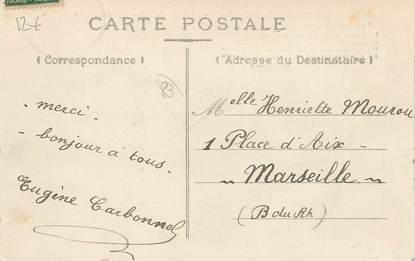 12€
CARTE POSTALE
(Correspondance)
(Adresse du Destinataire)
83
- merci -
- bonjour à tous -
Eugène Carbonnel
Melle Henriette Mourou
1 Place d'Aix -
" Marseille "
(B du Rh)